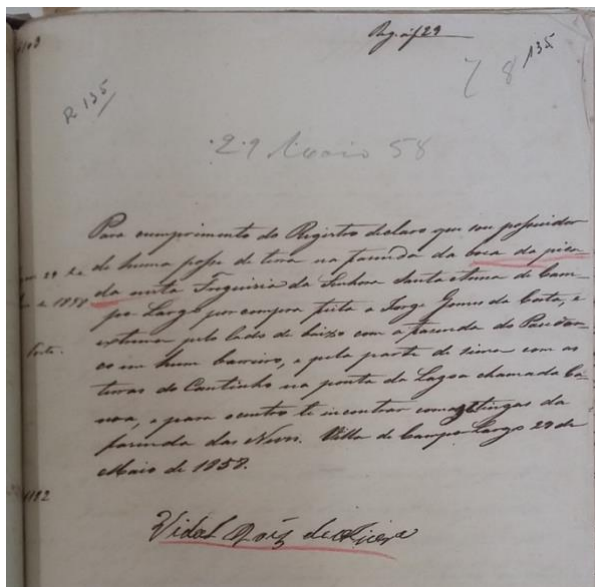 Rg. a f 29
135
7 8
R 135
29 Maio 58
Para cumprimento do Registro declaro que sou possuidor
de huma posse de terra na fazenda da boca da pica-
da nesta Freguisia da Senhora Santa Anna de Cam-
po Largo por compra feita a Jorge Gomes da Costa, e
extrema pelo lado de baixo com a fazenda do
em hum barreiro, e pela parte de sima com as
terras do Cantinho na ponta da Lagoa chamada Ca-
nova, e para o centro te incontrar com da
fazenda das Neves. Villa de Campo Largo 29 de
Maio de 1858.
de 1858
Vidal